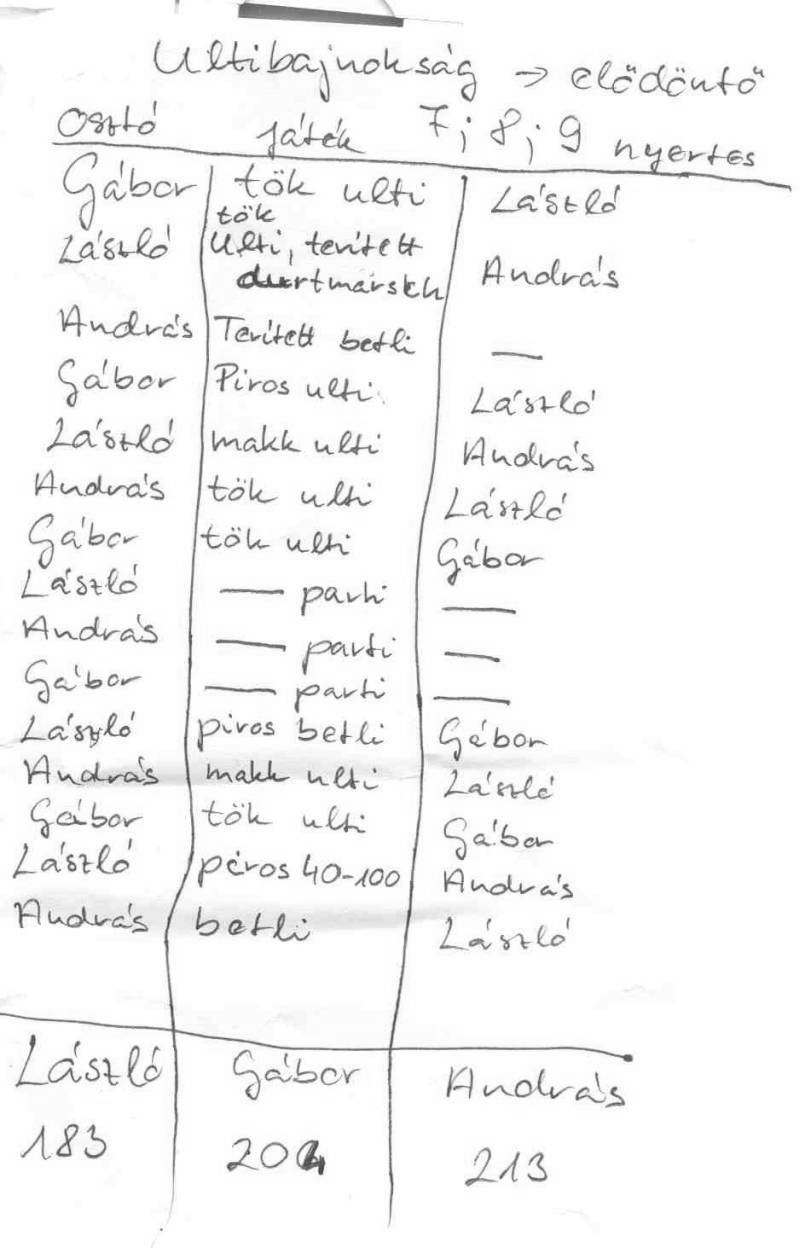 Ultibajnokság → elődöntő
Osztó játék 7; 8; 9 nyertes
Gábor tök ulti László
László tök Ulti, terített durtmarsch András
András Terített betli —
Gábor Piros ulti László
László makk ulti András
András tök ulti László
Gábor tök ulti Gábor
László — parti —
András — parti —
Gábor — parti —
László piros betli Gábor
András makk ulti László
Gábor tök ulti Gábor
László piros 40-100 András
András betli László
László Gábor András
183 204 213